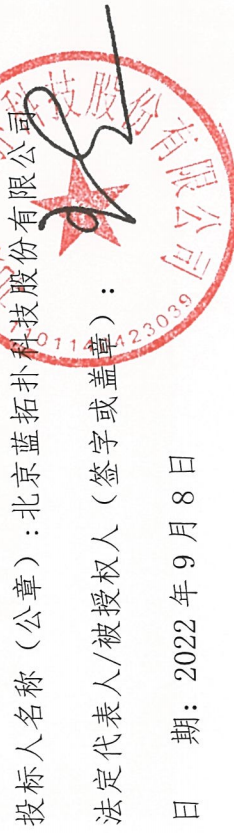 投标人名称（公章）:北京蓝拓扑科技股份有限公司
法定代表人/被授权人（签字或盖章）:
日 期: 2022 年 9 月 8 日
科技股份有限公司